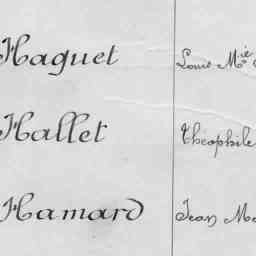 Haguet Louis Mie
Hallet Théophile
Hamard Jean Ma